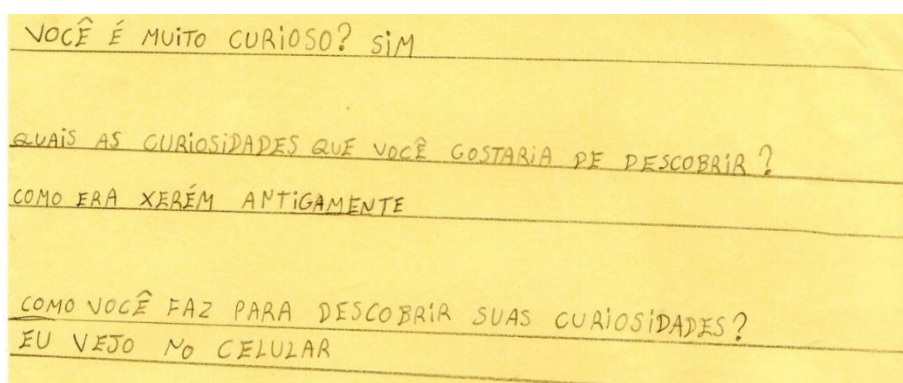 VOCÊ É MUITO CURIOSO? SIM
QUAIS AS CURIOSIDADES QUE VOCÊ GOSTARIA DE DESCOBRIR?
COMO ERA XERÉM ANTIGAMENTE
COMO VOCÊ FAZ PARA DESCOBRIR SUAS CURIOSIDADES?
EU VEJO NO CELULAR